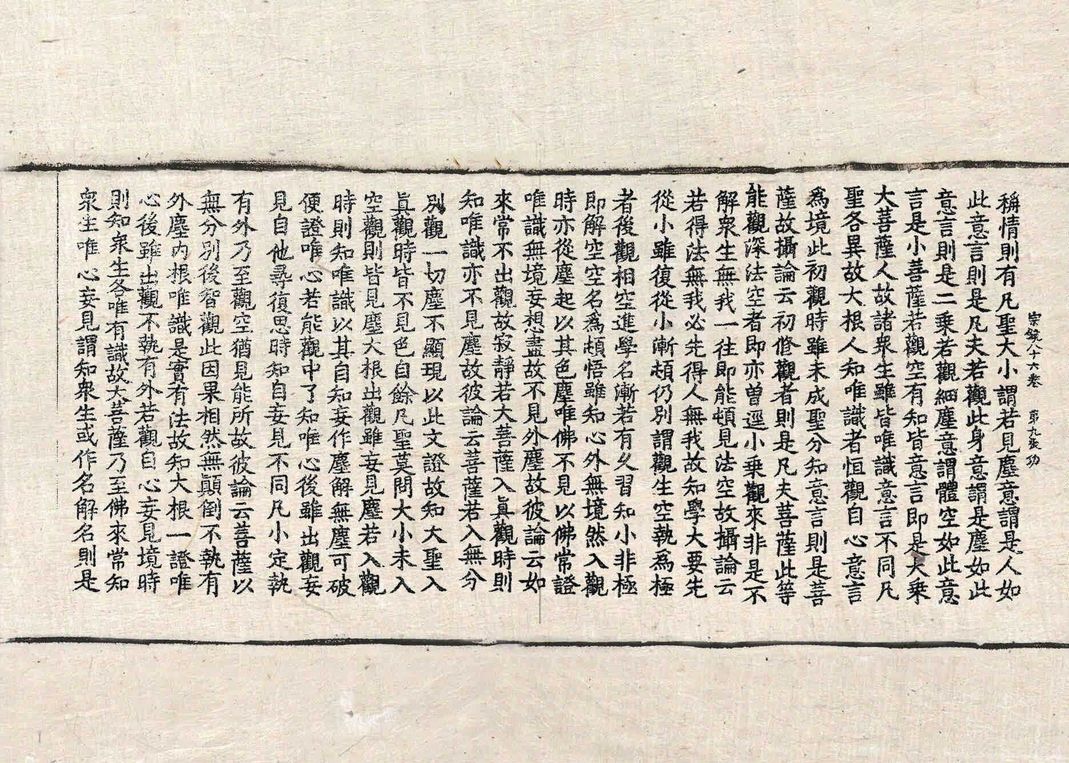 宗鏡八十六卷 第九張 功
稱情則有凡聖大小謂若見塵意謂是人如
此意言則是凡夫若觀此身意謂是塵如此
意言則是二乘若觀細塵意謂體空如此意
言是小菩薩若觀空有知皆意言即是大乘
大菩薩人故諸衆生雖皆唯識意言不同凡
聖各異故大根人知唯識者恒觀自心意言
爲境此初觀時雖未成聖分知意言則是菩
薩故攝論云初修觀者則是凡夫菩薩此等
能觀深法空者即亦曾逕小乘觀來非是不
解衆生無我一往即能頓見法空故攝論云
若得法無我必先得人無我故知學大要先
從小雖復從小漸頓仍別謂觀生空執爲極
者後觀相空進學名漸若有久習知小非極
即解空空名爲頓悟雖知心外無境然入觀
時亦從塵起以其色塵唯佛不見以佛常證
唯識無境妄想盡故不見外塵故彼論云如
來常不出觀故寂靜若大菩薩入眞觀時則
知唯識亦不見塵故彼論云菩薩若入無分
別觀一切塵不顯現以此文證故知大聖入
眞觀時皆不見色自餘凡聖莫問大小未入
空觀則皆見塵大根出觀雖妄見塵若入觀
時則知唯識以其自知妄作塵解無塵可破
便證唯心若能觀中了知唯心後雖出觀妄
見自他尋復思時知自妄見不同凡小定執
有外乃至觀空猶見能所故彼論云菩薩以
無分別後智觀此因果相然無顛倒不執有
外塵內根唯識是實有法故知大根一證唯
心後雖出觀不執有外若觀自心妄見境時
則知衆生各唯有識故大菩薩乃至佛來常知
衆生唯心妄見謂知衆生或作名解名則是